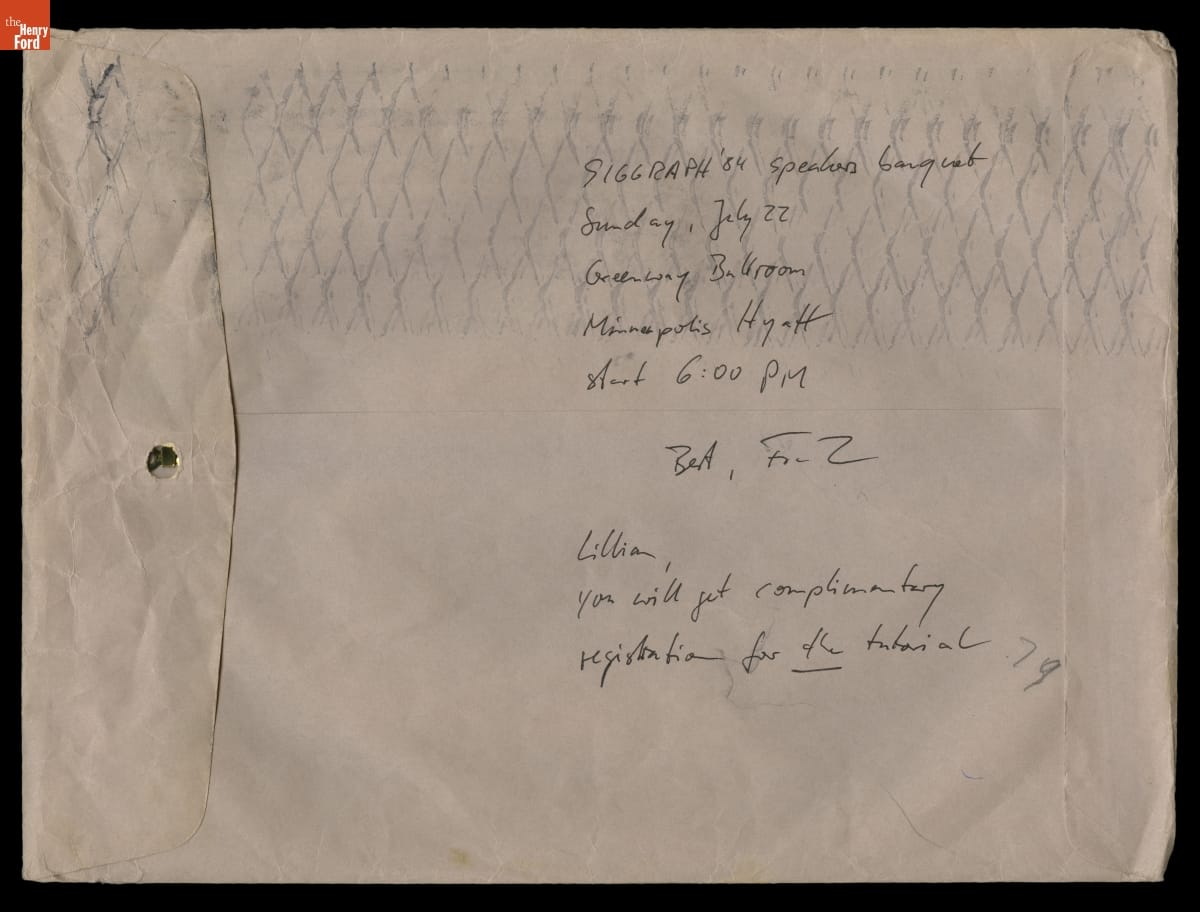 the
Henry
Ford
SIGGRAPH '84 speakers banquet
Sunday, July 22
Greenway Ballroom
Minneapolis Hyatt
start 6:00 PM
Best, Franz
Lillian,
you will get complimentary
registration for the tutorial